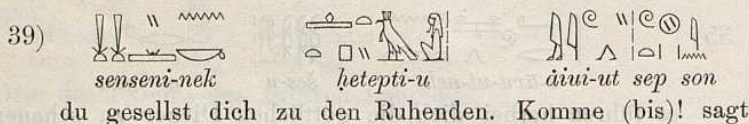 39)
senseni-nek ḥetepti-u áiui-ut sep son
du gesellst dich zu den Ruhenden. Komme (bis)! sagt